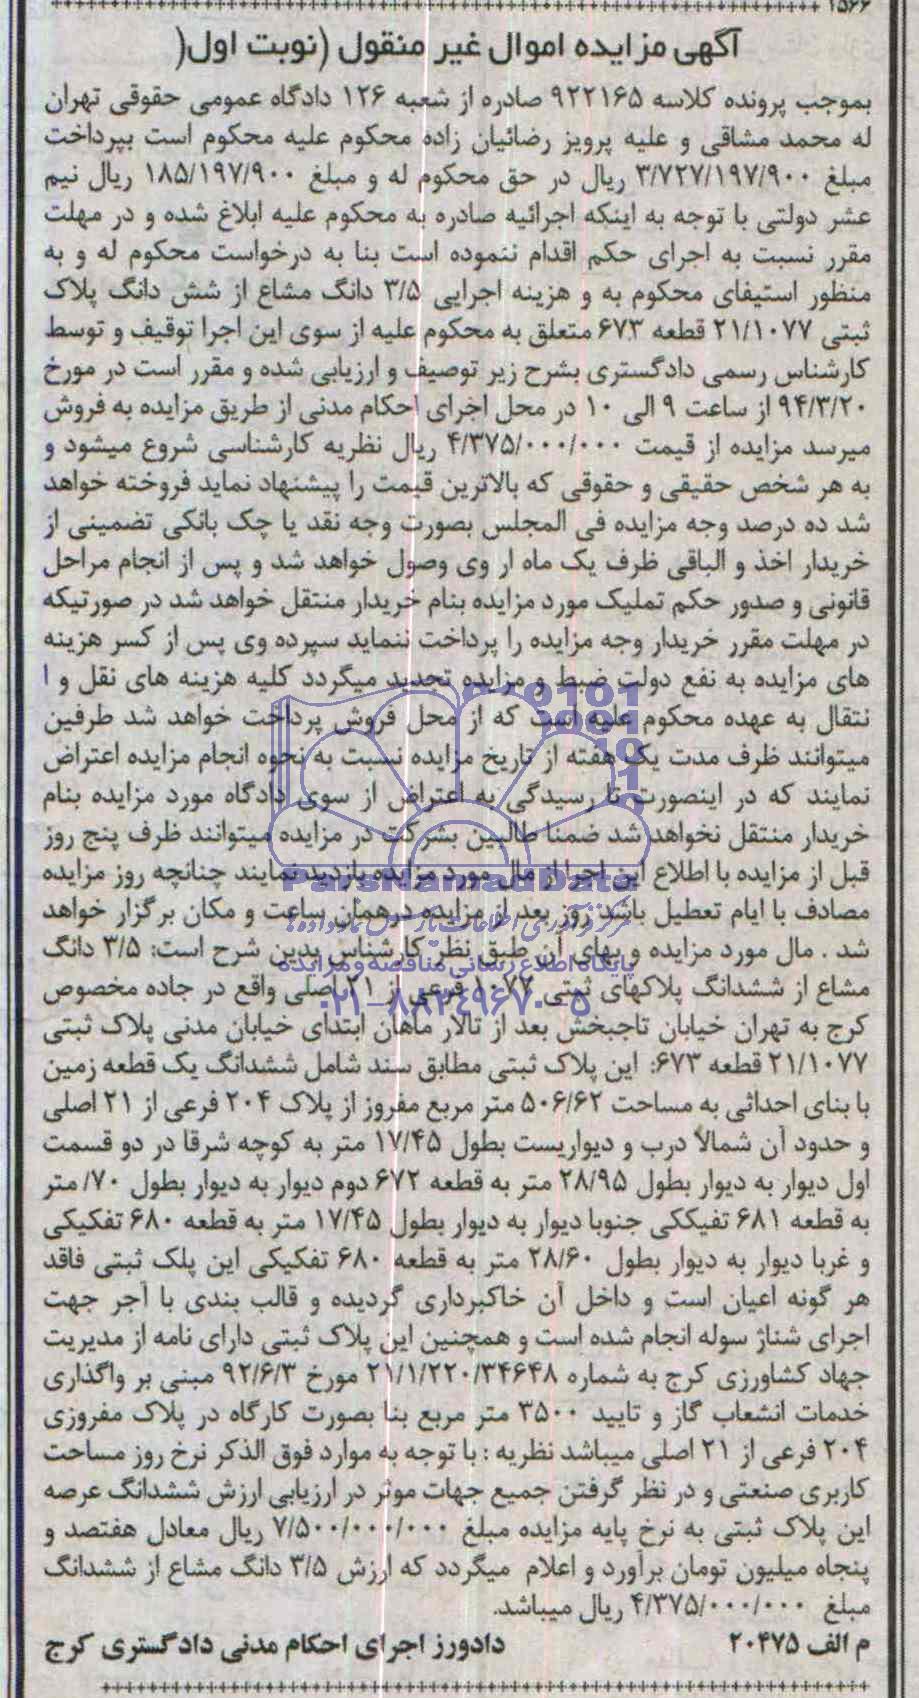 ۱۵۶۶
آگهی مزایده اموال غیر منقول (نوبت اول(
بموجب پرونده کلاسه ۹۲۲۱۶۵ صادره از شعبه ۱۲۶ دادگاه عمومی حقوقی تهران
له محمد مشاقی و علیه پرویز رضائیان زاده محکوم علیه محکوم است بپرداخت
مبلغ ۳/۷۲۷/۱۹۷/۹۰۰ ریال در حق محکوم له و مبلغ ۱۸۵/۱۹۷/۹۰۰ ریال نیم
عشر دولتی با توجه به اینکه اجرائیه صادره به محکوم علیه ابلاغ شده و در مهلت
مقرر نسبت به اجرای حکم اقدام ننموده است بنا به درخواست محکوم له و به
منظور استیفای محکوم به و هزینه اجرایی ۳/۵ دانگ مشاع از شش دانگ پلاک
ثبتی ۲۱/۱۰۷۷ قطعه ۶۷۳ متعلق به محکوم علیه از سوی این اجرا توقیف و توسط
کارشناس رسمی دادگستری بشرح زیر توصیف و ارزیابی شده و مقرر است در مورخ
۹۴/۳/۲۰ از ساعت ۹ الی ۱۰ در محل اجرای احکام مدنی از طریق مزایده به فروش
میرسد مزایده از قیمت ۴/۳۷۵/۰۰۰/۰۰۰ ریال نظریه کارشناسی شروع میشود و
به هر شخص حقیقی و حقوقی که بالاترین قیمت را پیشنهاد نماید فروخته خواهد
شد ده درصد وجه مزایده فی المجلس بصورت وجه نقد یا چک بانکی تضمینی از
خریدار اخذ و الباقی ظرف یک ماه ار وی وصول خواهد شد و پس از انجام مراحل
قانونی و صدور حکم تملیک مورد مزایده بنام خریدار منتقل خواهد شد در صورتیکه
در مهلت مقرر خریدار وجه مزایده را پرداخت ننماید سپرده وی پس از کسر هزینه
های مزایده به نفع دولت ضبط و مزایده تجدید میگردد کلیه هزینه های نقل و ا
نتقال به عهده محکوم علیه است که از محل فروش پرداخت خواهد شد طرفین
میتوانند ظرف مدت یک هفته از تاریخ مزایده نسبت به نحوه انجام مزایده اعتراض
نمایند که در اینصورت تا رسیدگی به اعتراض از سوی دادگاه مورد مزایده بنام
خریدار منتقل نخواهد شد ضمنا طالبین بشرکت در مزایده میتوانند ظرف پنج روز
قبل از مزایده با اطلاع این اجرا از مال مورد مزایده بازدید نمایند چنانچه روز مزایده
مصادف با ایام تعطیل باشد روز بعد از مزایده درهمان ساعت و مکان برگزار خواهد
شد . مال مورد مزایده و بهای آن طبق نظر کارشناس بدین شرح است: ۳/۵ دانگ
مشاع از ششدانگ پلاکهای ثبتی ۱۰۷۷ فرعی از ۲۱ اصلی واقع در جاده مخصوص
کرج به تهران خیابان تاجبخش بعد از تالار ماهان ابتدای خیابان مدنی پلاک ثبتی
۲۱/۱۰۷۷ قطعه ۶۷۳: این پلاک ثبتی مطابق سند شامل ششدانگ یک قطعه زمین
با بنای احداثی به مساحت ۵۰۶/۶۲ متر مربع مفروز از پلاک ۲۰۴ فرعی از ۲۱ اصلی
و حدود آن شمالاً درب و دیواریست بطول ۱۷/۴۵ متر به کوچه شرقا در دو قسمت
اول دیوار به دیوار بطول ۲۸/۹۵ متر به قطعه ۶۷۲ دوم دیوار به دیوار بطول ۷۰/ متر
به قطعه ۶۸۱ تفیککی جنوبا دیوار به دیوار بطول ۱۷/۴۵ متر به قطعه ۶۸۰ تفکیکی
و غربا دیوار به دیوار بطول ۲۸/۶۰ متر به قطعه ۶۸۰ تفکیکی این پلک ثبتی فاقد
هر گونه اعیان است و داخل آن خاکبرداری گردیده و قالب بندی با آجر جهت
اجرای شناژ سوله انجام شده است و همچنین این پلاک ثبتی دارای نامه از مدیریت
جهاد کشاورزی کرج به شماره ۲۱/۱/۲۲۰/۳۴۶۴۸ مورخ ۹۲/۶/۳ مبنی بر واگذاری
خدمات انشعاب گاز و تایید ۳۵۰۰ متر مربع بنا بصورت کارگاه در پلاک مفروزی
۲۰۴ فرعی از ۲۱ اصلی میباشد نظریه : با توجه به موارد فوق الذکر نرخ روز مساحت
کاربری صنعتی و در نظر گرفتن جمیع جهات موثر در ارزیابی ارزش ششدانگ عرصه
این پلاک ثبتی به نرخ پایه مزایده مبلغ ۷/۵۰۰/۰۰۰/۰۰۰ ریال معادل هفتصد و
پنجاه میلیون تومان برآورد و اعلام میگردد که ارزش ۳/۵ دانگ مشاع از ششدانگ
مبلغ ۴/۳۷۵/۰۰۰/۰۰۰ ریال میباشد.
م الف ۲۰۴۷۵ دادورز اجرای احکام مدنی دادگستری کرج
ParsNamadData
پایگاه اطلاع رسانی مناقصه و مزایده
۰۲۱-۸۸۳۴۹۶۷۰-۵